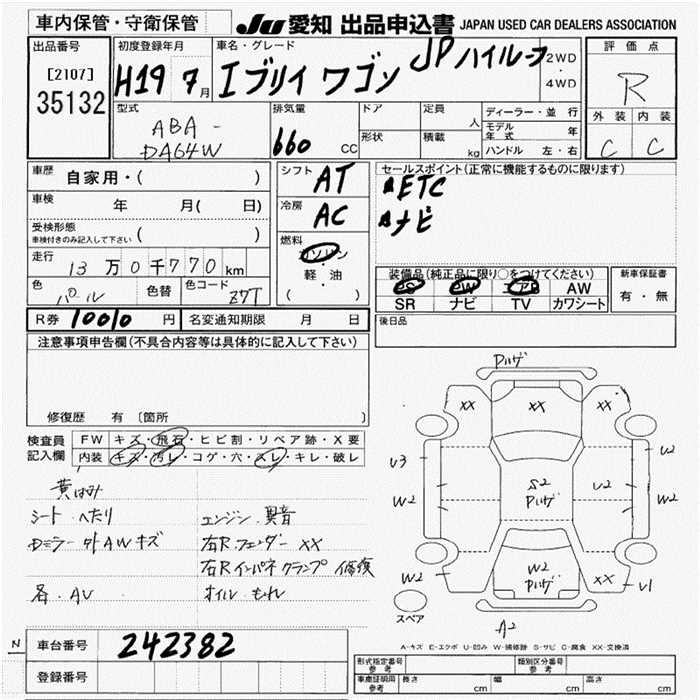 車内保管・守衛保管
JU 愛知 出品申込書 JAPAN USED CAR DEALERS ASSOCIATION
出品番号
[2107]
35132
初度登録年月
H19 7月
車名・グレード
エブリイ ワゴン JPハイルーフ
2WD
・
4WD
評価点
R
外装 内装
C C
型式
ABA-
DA64W
排気量
660 cc
ドア
形状
定員 人
積載 kg
ディーラー・並行
モデル年式 年
ハンドル 左・右
車歴 自家用・( )
車検 年 月( 日)
受検形態
車検付きのみ記入して下さい ( )
走行 13万0千770km
色 パール 色替 色コード Z7T
シフト AT
冷房 AC
燃料
ガソリン
・
軽・油
( )
セールスポイント(正常に機能するものに限ります)
ETC
ナビ
装備品(純正品に限り○をつけてください)
PS PW エアB AW
SR ナビ TV カワシート
新車保証書
有・無
R券 10010円 名変通知期限 月 日
後日品
注意事項申告欄(不具合内容等は具体的に記入して下さい)
修復歴 有 〔箇所 〕
検査員
記入欄
FW キズ・飛石・ヒビ割・リペア跡・X要
内装 キズ・汚レ・コゲ・穴・スレ・キレ・破レ
黄ばみ
シート へたり
Dミラー 外AWキズ
各.AU
エンジン.異音
右R.フェンダー XX
右Rインパネクランプ 修復
オイル もれ
Pハゲ
XX XX XX
U3 U2
S2
Pハゲ
U2
W2 W2
W2
W2
Pハゲ
XX U1
スペア
A2
A-キズ E-エクボ U-凹み W-補修跡 S-サビ C-腐食 XX-交換済
N
車台番号 242382
登録番号
形式指定番号
参考
類別区分番号
参考
車庫証明用
参考
長さ cm 幅 cm 高さ cm